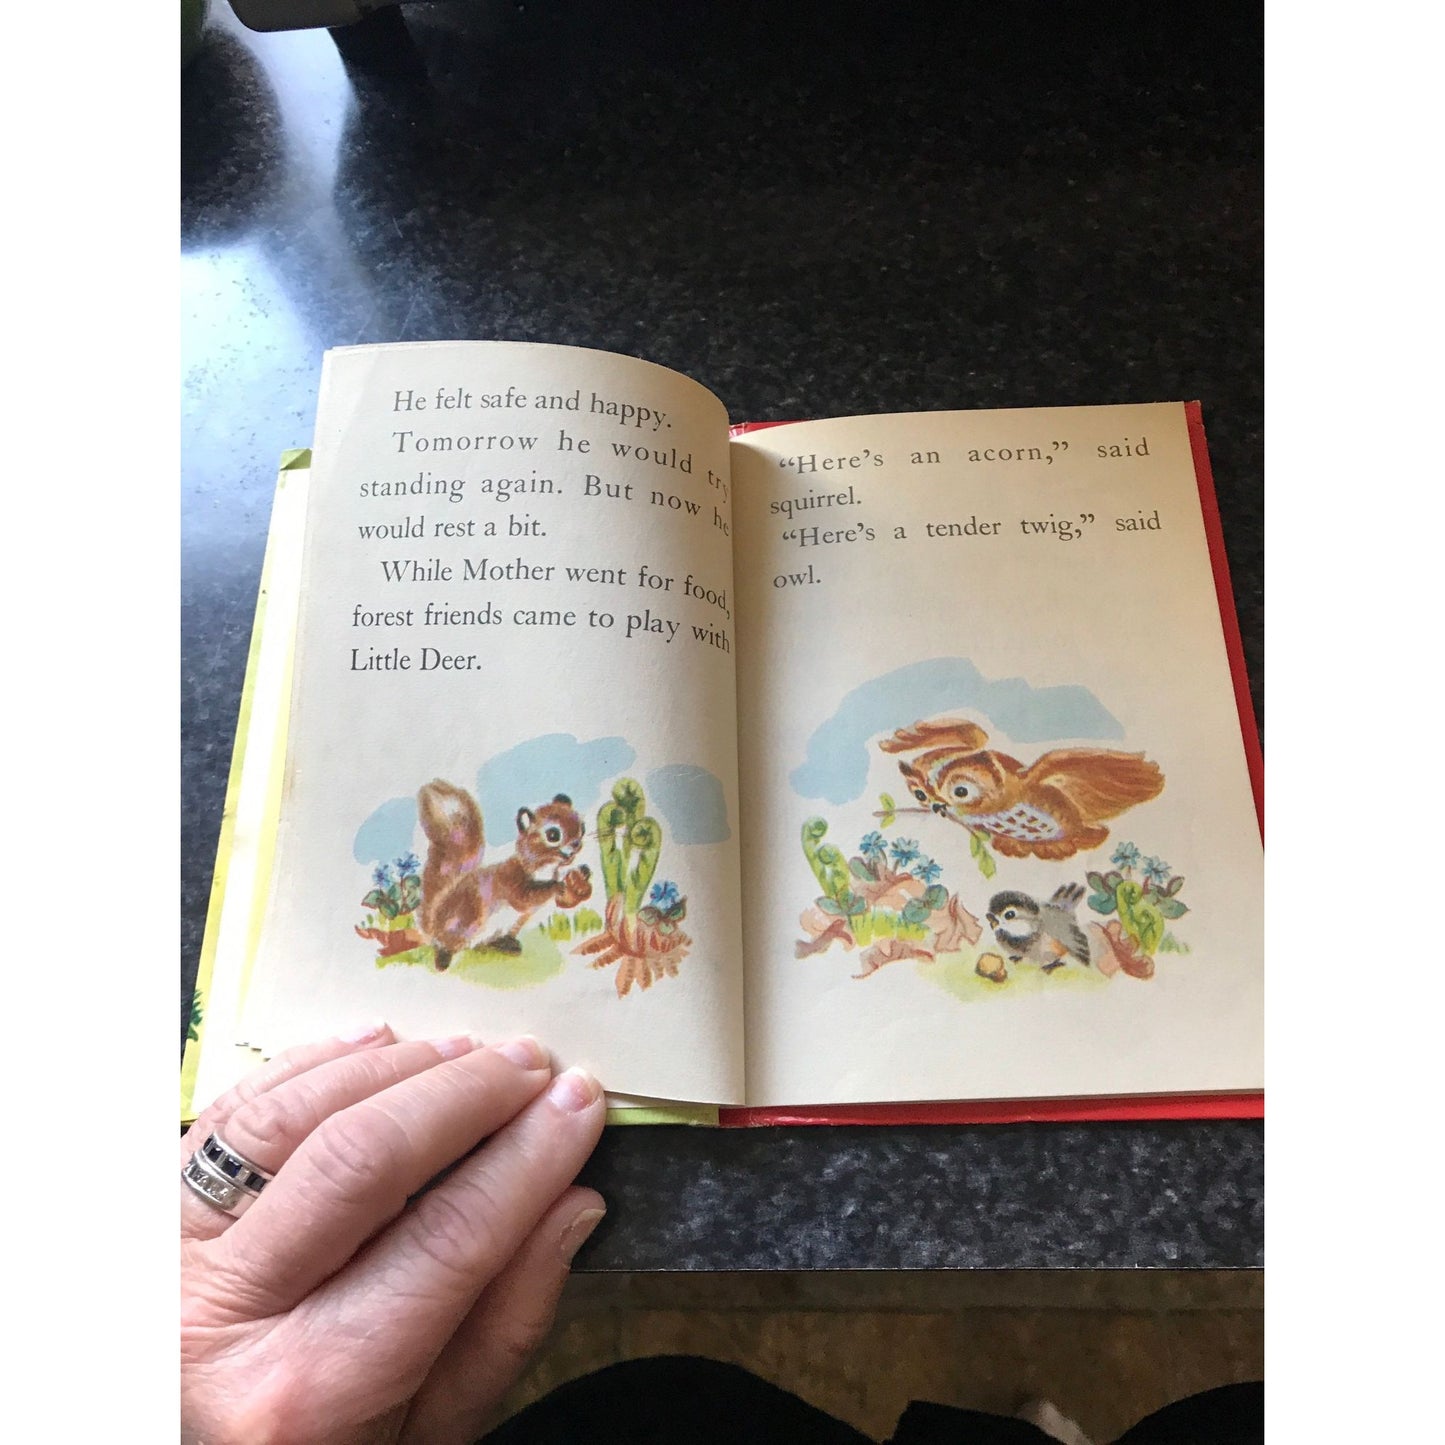 He felt safe and happy.
Tomorrow he would try
standing again. But now he
would rest a bit.
While Mother went for food,
forest friends came to play with
Little Deer.
“Here’s an acorn,” said
squirrel.
“Here’s a tender twig,” said
owl.